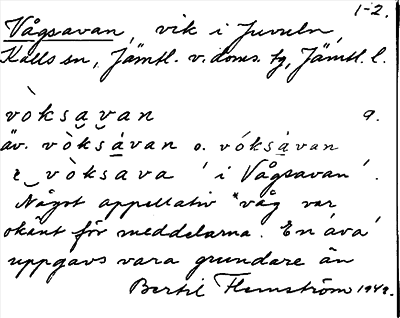 1-2.
Vågsavan, vik i Juveln,
Kalls sn, Jämtl. v. doms. tg, Jämtl. l.
vòksa̮van 9.
äv. vò̮ksá̱van o. vóksá̱van
i̮ vò̮ksava 'i Vågsavan'.
Något appellativ *våg var
okänt för meddelarna. En 'ava'
uppgavs vara grundare än
Bertil Flemström 1949.